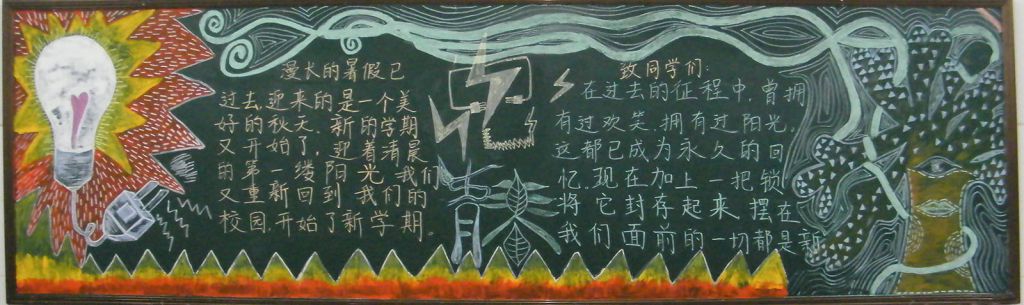 漫长的暑假已
过去,迎来的是一个美
好的秋天.新的学期
又开始了,迎着清晨
的第一缕阳光我们
又重新回到我们的
校园.开始了新学期。
致同学们:
在过去的征程中,曾拥
有过欢笑.拥有过阳光,
这都已成为永久的回
忆.现在加上一把锁
将它封存起来.摆在
我们面前的一切都是新